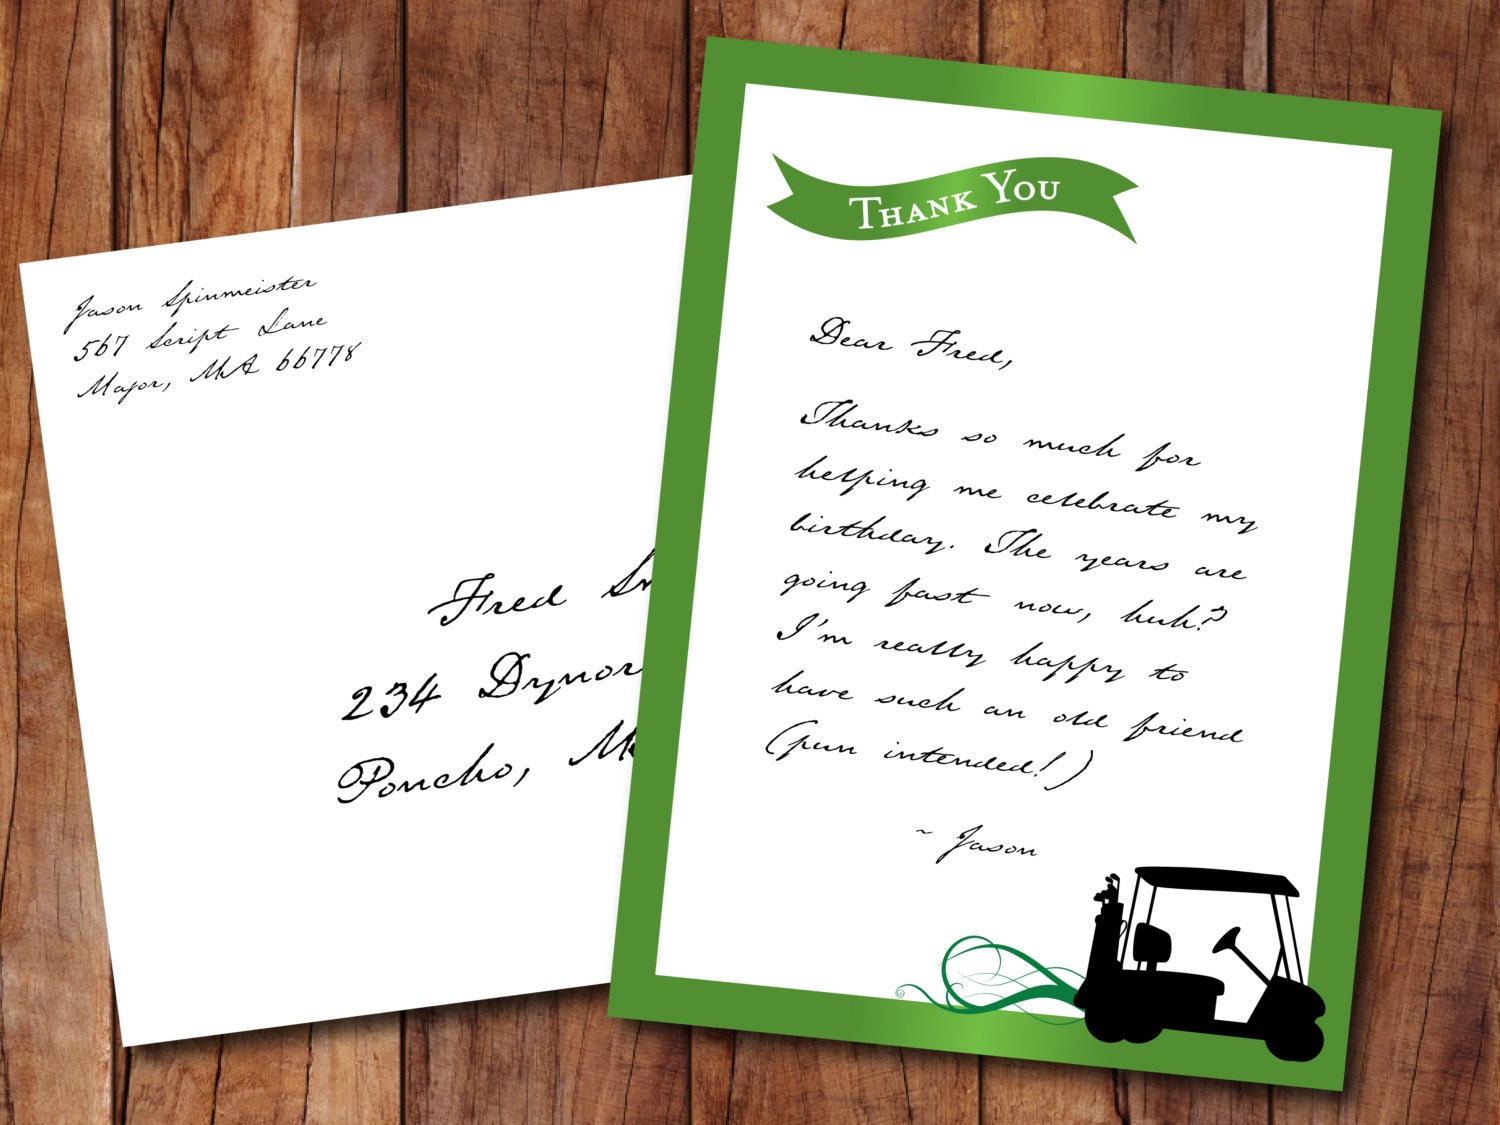 Jason Spinmeister
567 Script Lane
Major, MA 66778
Fred
234
Poncho,
THANK YOU
Dear Fred,
Thanks so much for
helping me celebrate my
birthday. The years are
going fast now, huh?
I'm really happy to
have such an old friend
(pun intended!)
~ Jason